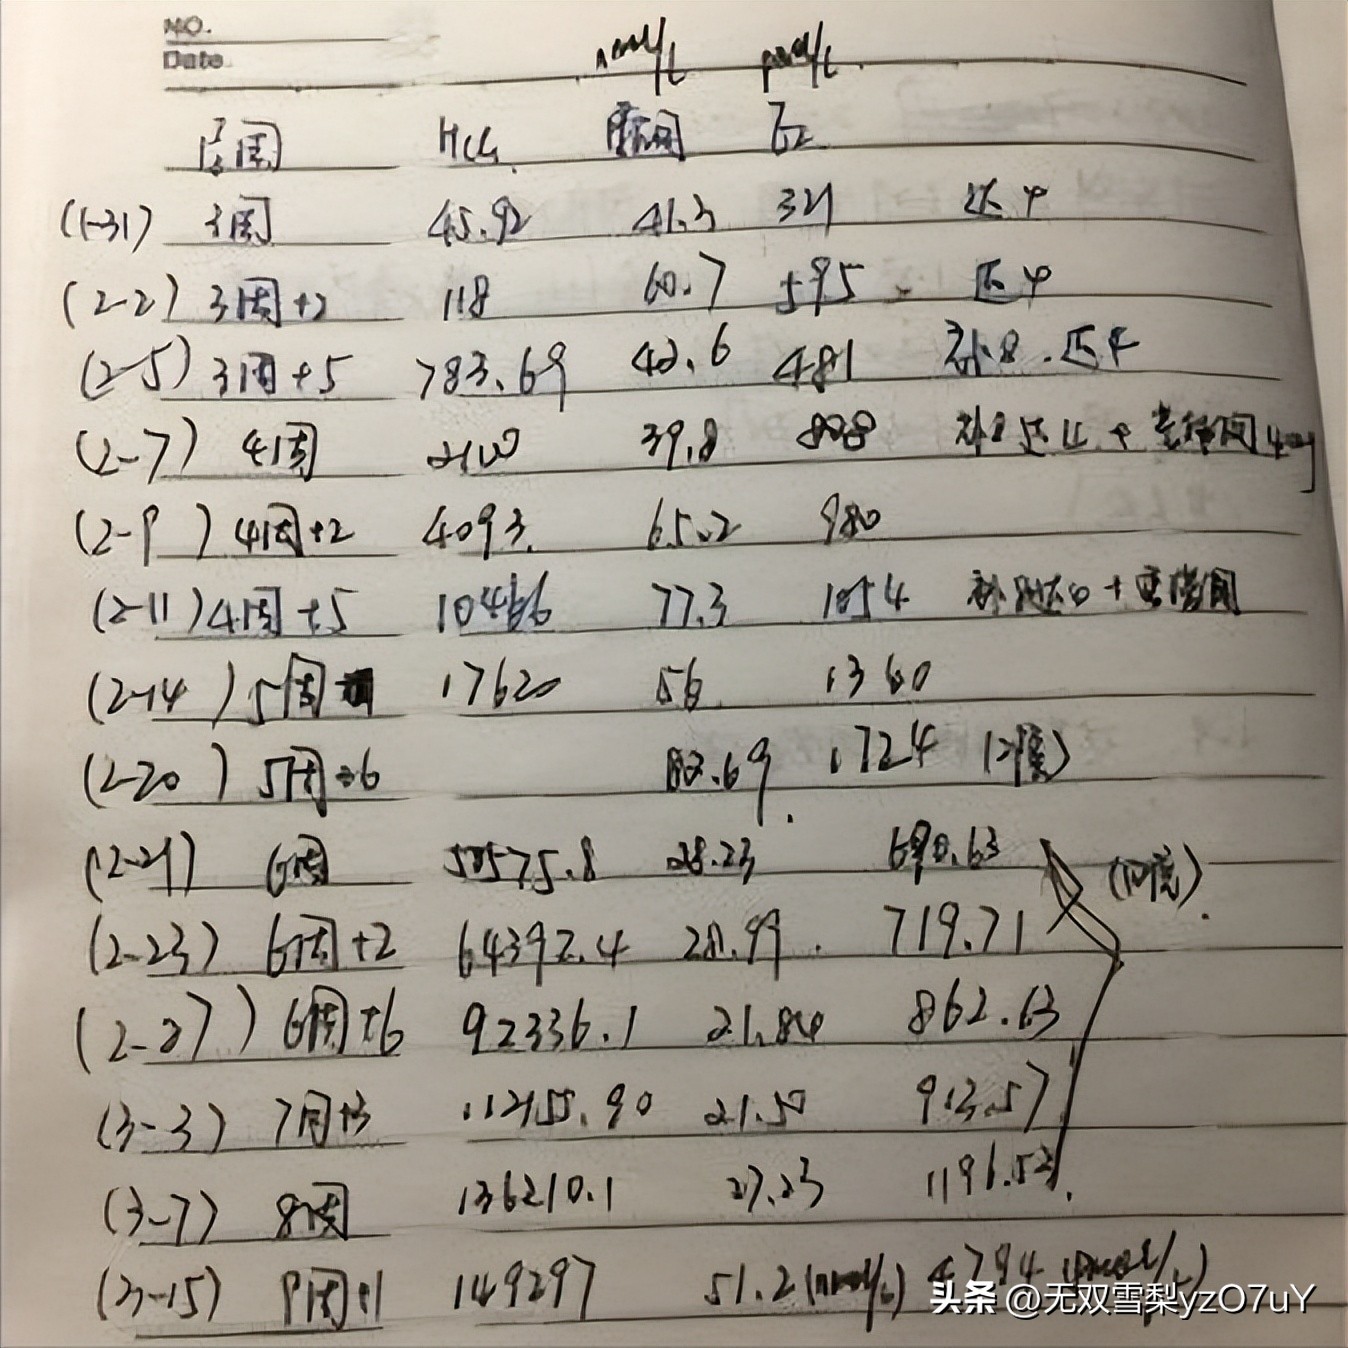 NO.
Date
nmol/L pmol/L
孕周 HCG 孕酮 E2
(1-31) 3周 45.92 41.3 321 达4
(2-2) 3周+2 118 60.7 595 达4
(2-5) 3周+5 783.69 42.6 481 补8.达4
(2-7) 4周 2100 39.8 808
(2-9) 4周+2 4093. 65.2 980
(2-11) 4周+5 1054
(2-14) 5周 17620 56 1360
(2-20) 5周+6 1724
(2-21) 6周 50575.8 28.23 690.63
(2-23) 6周+2 64392.4 28.99 719.71
(2-27) 6周+6 92336.1 21.84 862.63
(3-3) 7周+3 112155.90 21.50 913.57
(3-7) 8周 136210.1 27.23 1196.52
(3-15) 9周+1 149297 51.2(nmol/L) 4794 (pmol/L)
头条 @无双雪梨yzO7uY